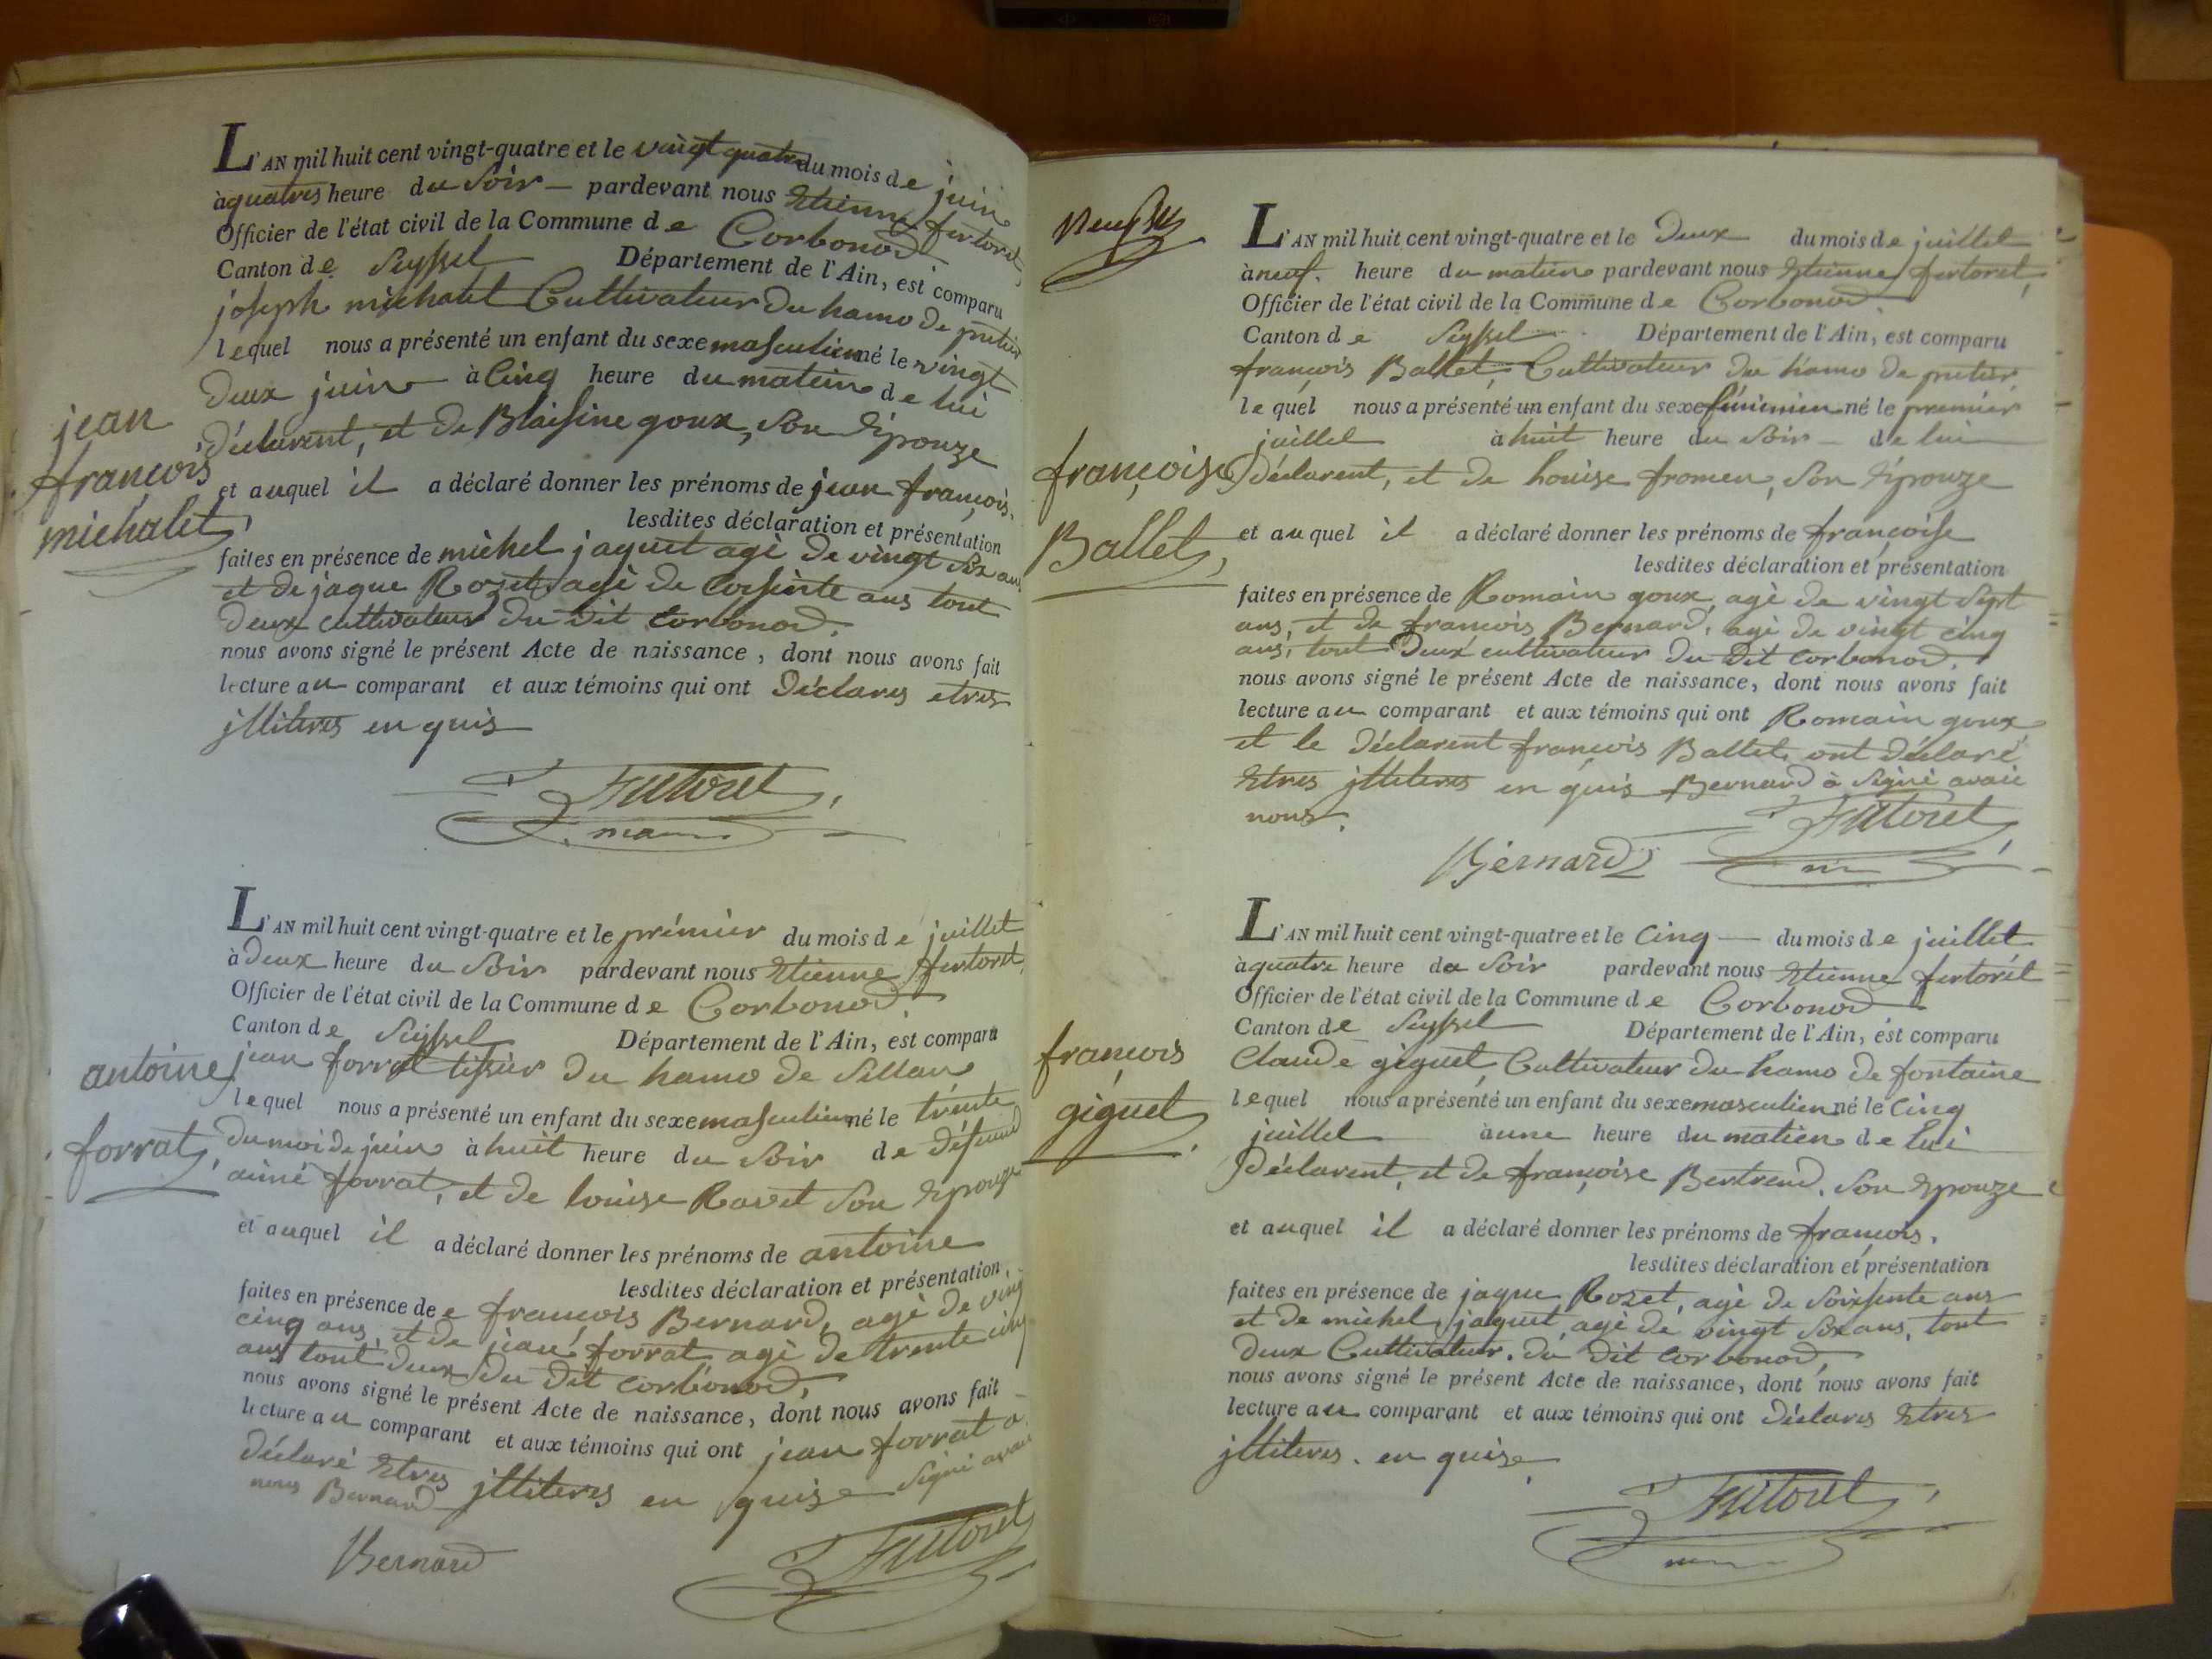 L'AN mil huit cent vingt-quatre et le vingt quatre du mois de juin
à quatres heure du Soir — pardevant nous Etienne fertoret,
Officier de l'état civil de la Commune de Corbonod
Canton de Seyssel Département de l'Ain, est comparu
joseph michalet Cultivateur du hamo de
lequel nous a présenté un enfant du sexe masculien né le vingt
deux juin à Cinq heure du matien de lui
déclarent, et de Blaisine goux, Son Epouze
jean
françois
michalet
et auquel il a déclaré donner les prénoms de jean françois.
lesdites déclaration et présentation
faites en présence de michel jaquet agè de vingt Six ans
et de jaque Rozet agè de Soissente ans tout
deux cultivateur du dit Corbonod.
nous avons signé le présent Acte de naissance, dont nous avons fait
lecture au comparant et aux témoins qui ont déclares etres
jlliteres en quis
Fertoret
L'AN mil huit cent vingt-quatre et le prémiér du mois de juillet
à deux heure du Soir pardevant nous Etienne fertoret,
Officier de l'état civil de la Commune de Corbonod.
Canton de Seyssel Département de l'Ain, est comparu
jean forrat tissier du hamo de Sillan
antoine
forrat
lequel nous a présenté un enfant du sexe masculien né le trente
du moi de juin à huit heure du Soir de défeund
aimé forrat, et de louise Ravet Son Epouze
et auquel il a déclaré donner les prénoms de antoine
lesdites déclaration et présentation
faites en présence de françois Bernard, agè de vingt
cinq ans, et de jean forrat agè de trente cinq
ans tout deux du dit Corbonod,
nous avons signé le présent Acte de naissance, dont nous avons fait
lecture au comparant et aux témoins qui ont jean forrat a
déclaré Etres jlliteres en quise Signé avaie
nous Bernard
Bernard
Fertoret
L'AN mil huit cent vingt-quatre et le deux du mois de juillet
à neuf. heure du matien pardevant nous Etienne fertoret,
Officier de l'état civil de la Commune de Corbonod.
Canton de Seyssel Département de l'Ain, est comparu
françois Ballet, Cultivateur du hamo de
lequel nous a présenté un enfant du sexe féminien né le premiér
juillet à huit heure du Soir — de lui
françoise
Ballet,
déclarent, et de louise fromen, Son Epouze
et auquel il a déclaré donner les prénoms de françoise
lesdites déclaration et présentation
faites en présence de Romain goux, agè de vingt Sept
ans, et de françois Bernard, agè de vingt cinq
ans, tout deux cultivateur du dit Corbonod.
nous avons signé le présent Acte de naissance, dont nous avons fait
lecture au comparant et aux témoins qui ont Romain goux
et le déclarent françois Ballet, ont déclaré
Etres jlliteres en quis Bernard à Signé avaie
nous.
Fertoret
Bernard
L'AN mil huit cent vingt-quatre et le Cinq — du mois de juillet
à quatre heure du Soir pardevant nous Etienne fertorét
Officier de l'état civil de la Commune de Corbonod
Canton de Seyssel Département de l'Ain, est comparu
françois
giguet
Claude giguet, Cultivateur du hamo de fontaine
lequel nous a présenté un enfant du sexe masculien né le Cinq
juillet à une heure du matien de lui
déclarent, et de françoise Bertrend, Son Epouze
et auquel il a déclaré donner les prénoms de françois.
lesdites déclaration et présentation
faites en présence de jaque Rozet, agè de Soixsente ans
et de michel jaquet agè de vingt Six ans, tout
deux Cultivateur. du dit Corbonod,
nous avons signé le présent Acte de naissance, dont nous avons fait
lecture au comparant et aux témoins qui ont déclares Etres
jlliteres. en quise
Fertoret